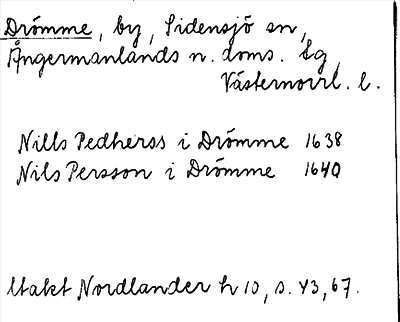 Drömme, by, Sidensjö sn,
Ångermanlands n. doms. lg,
Västernorrl. l.
Nills Pedherss i Drömme 1638
Nils Persson i Drömme 1640
Utakt Nordlander h 10, s. 43, 67.